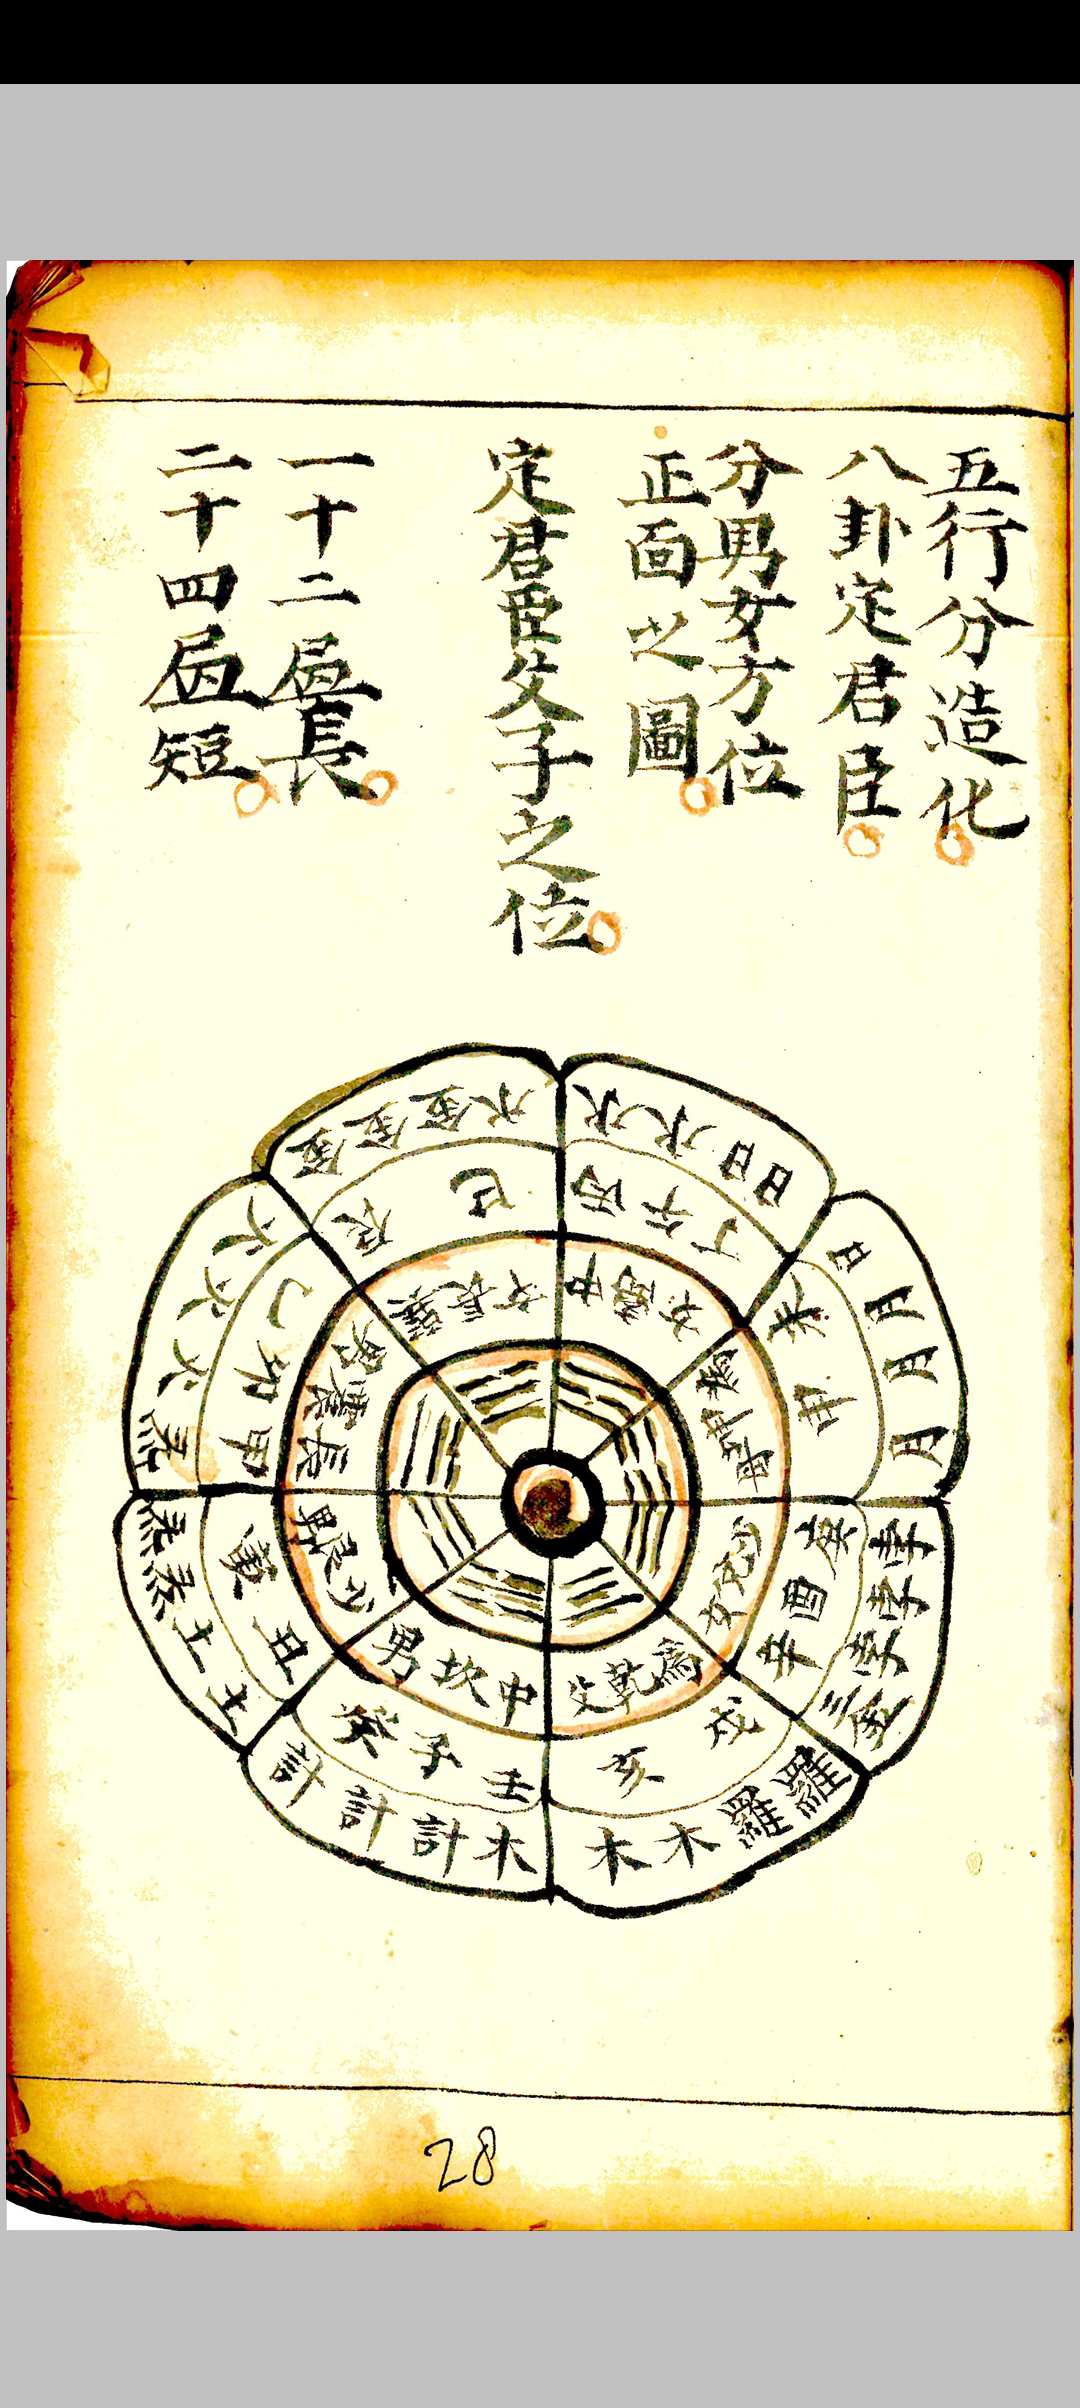 五行分造化
八卦定君臣
分男女方位
正面之圖
定君臣父子之位
一十二局長
二十四局短
水水日日
丙午丁
中 女
日月月月
未申
母坤為
孛孛孛
庚酉辛
少兌女
羅羅木木
戌亥
為乾父
木計計計
壬子癸
中坎男
土土
丑寅
少艮男
火火火
甲卯乙
長震男
金金金水
辰巳
巽長女
28